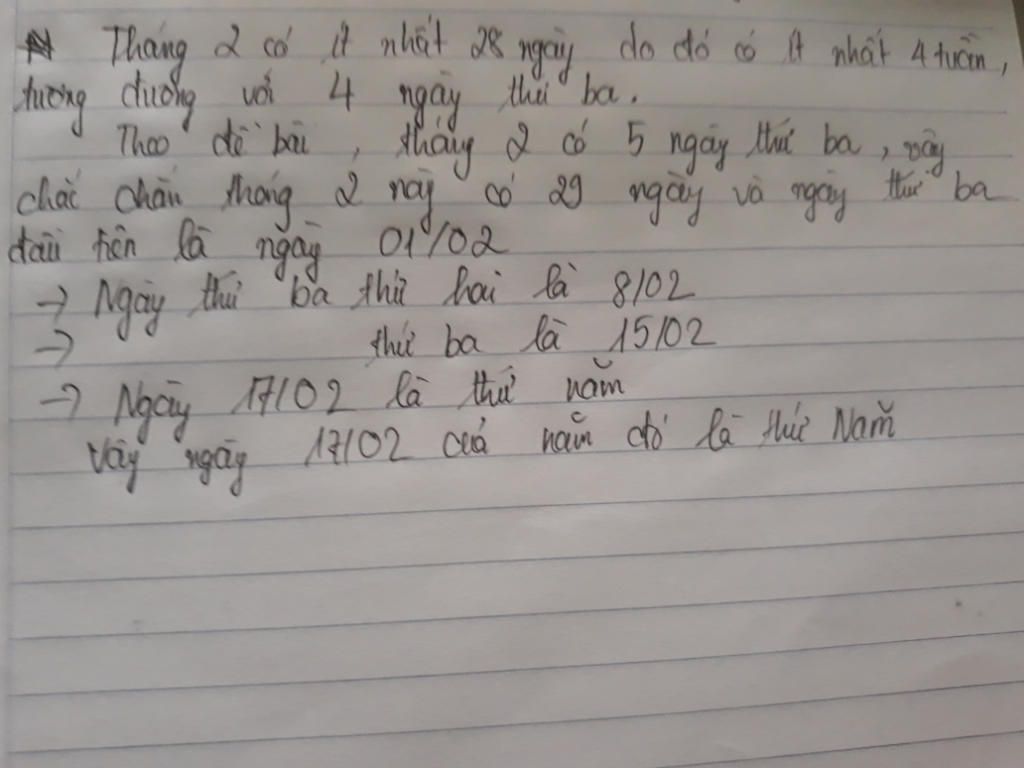 Tháng 2 có ít nhất 28 ngày do đó có ít nhất 4 tuần,
tương đương với 4 ngày thứ ba.
Theo đề bài, tháng 2 có 5 ngày thứ ba, vậy
chắc chắn tháng 2 này có 29 ngày và ngày thứ ba
đầu tiên là ngày 01/02
→ Ngày thứ ba thứ hai là 8/02
→ thứ ba là 15/02
→ Ngày 17/02 là thứ năm
Vậy ngày 17/02 của năm đó là thứ Năm